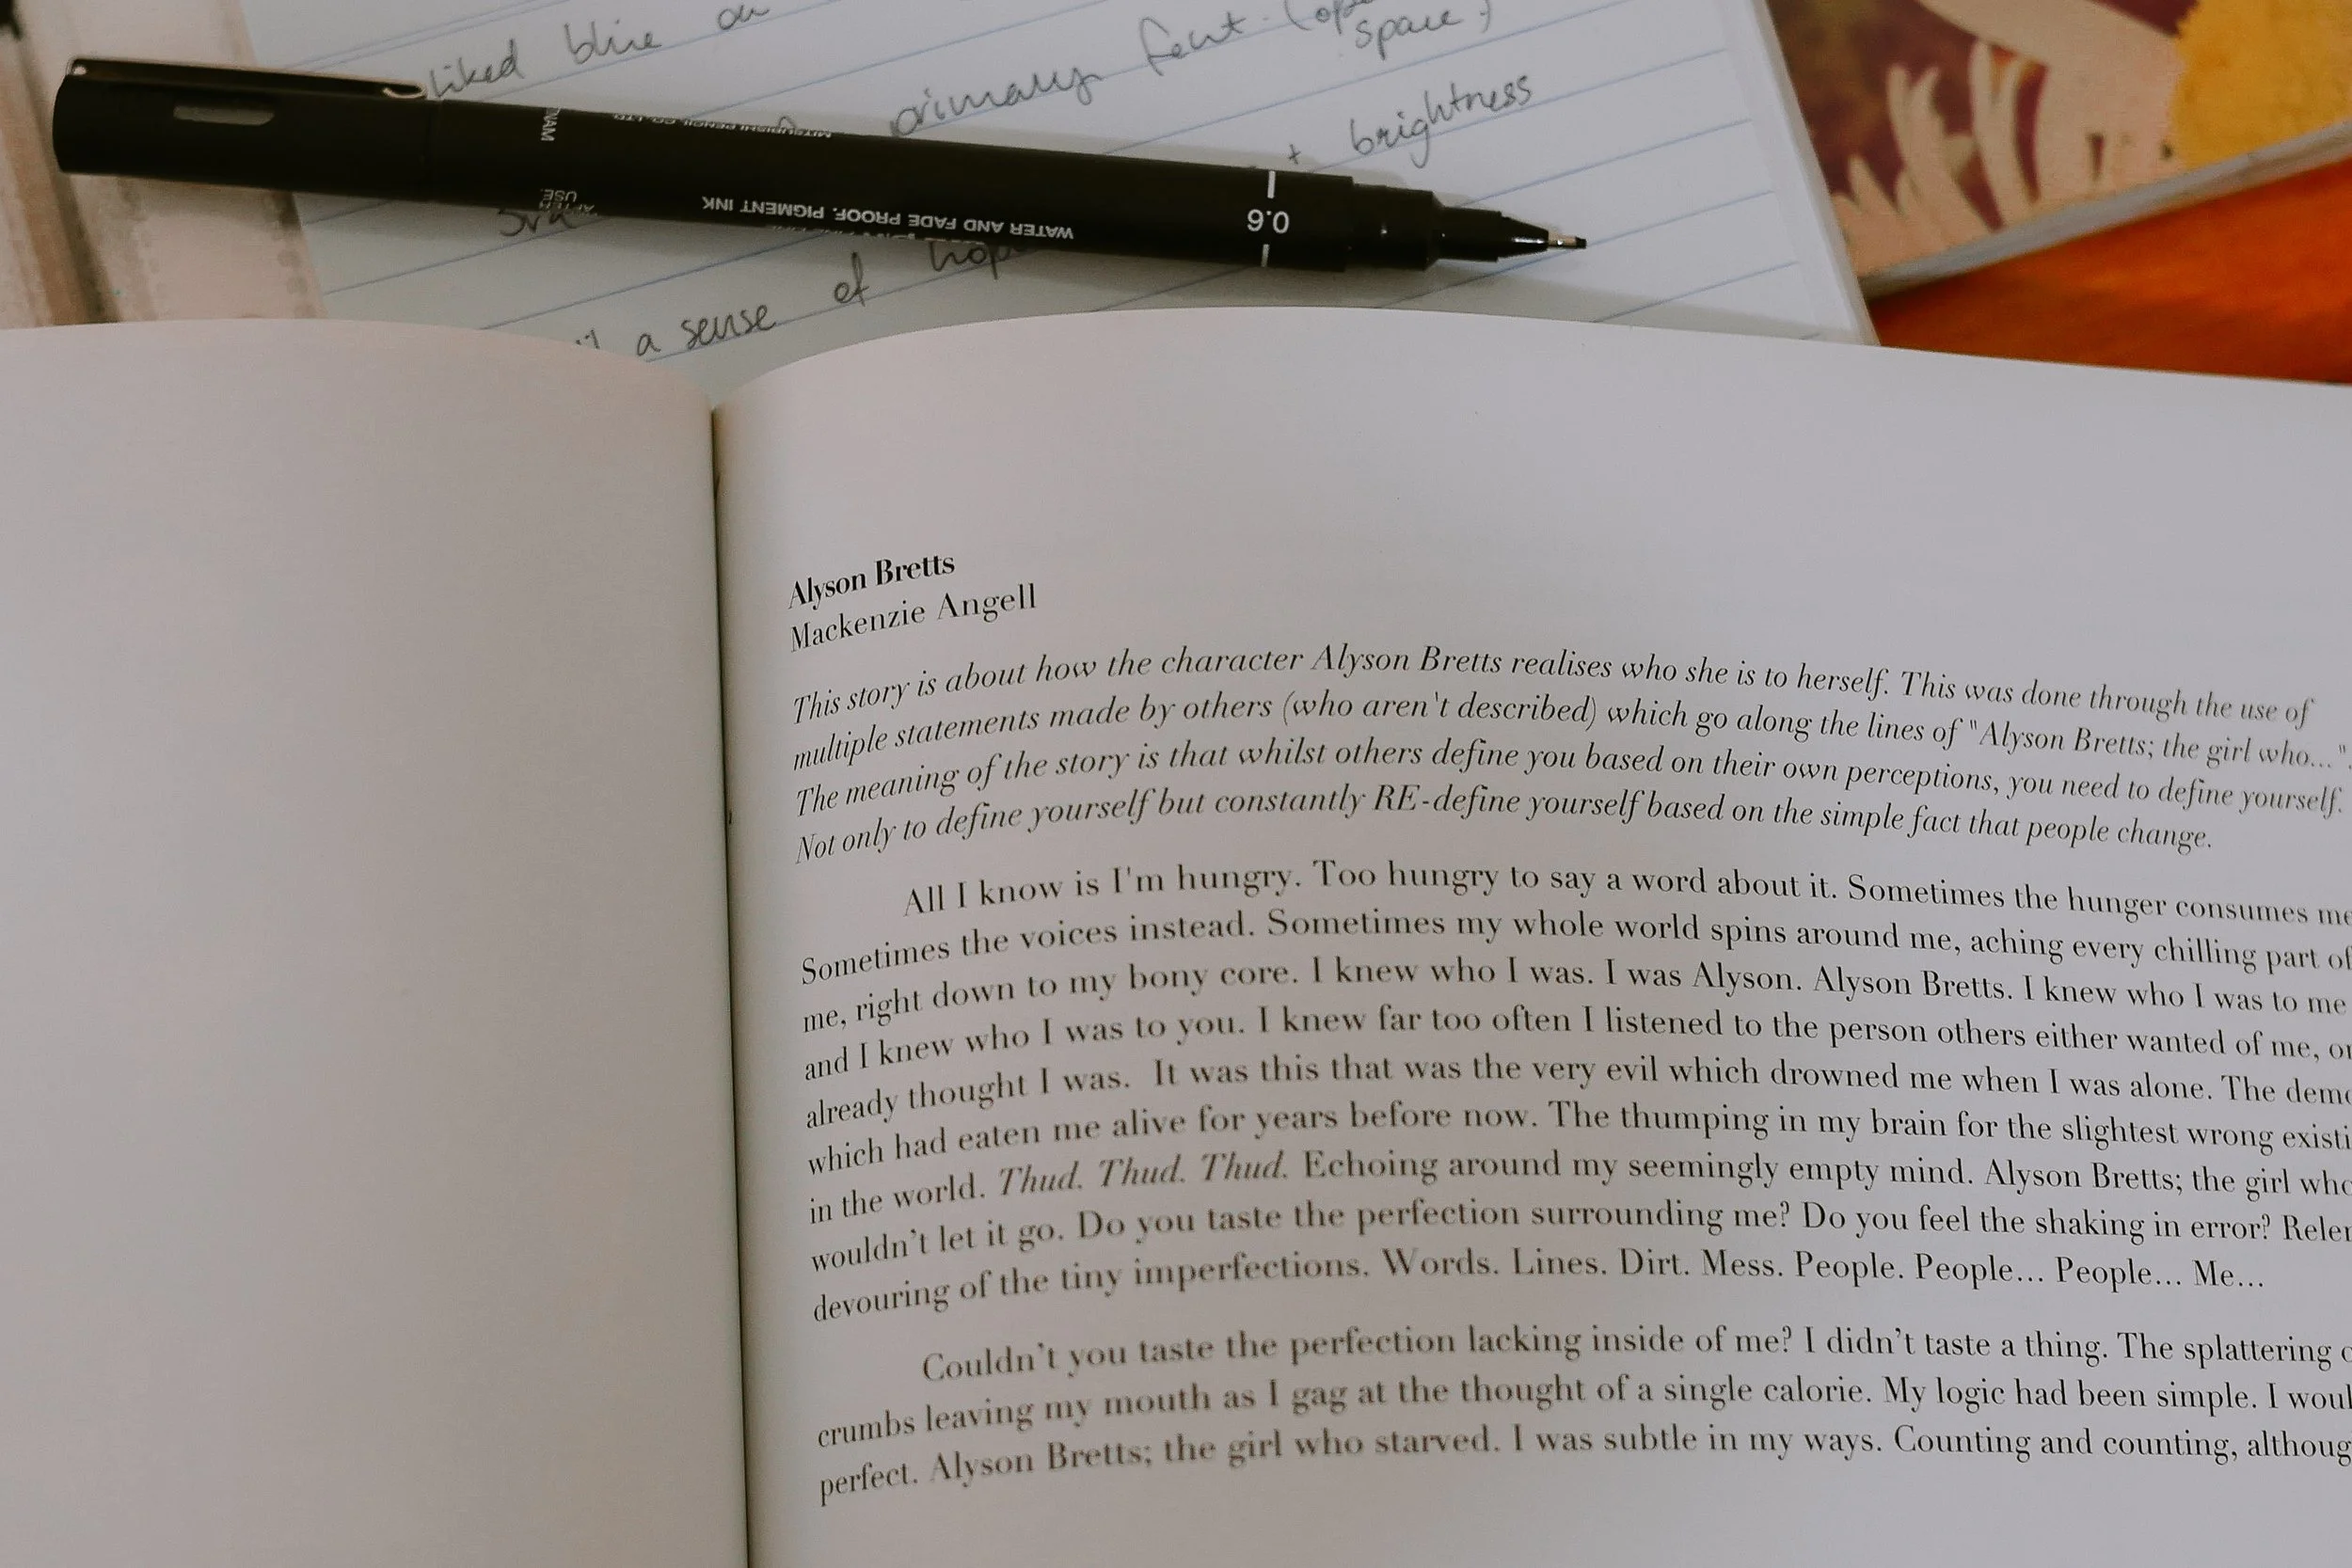 liked blue on
primary font. (open
space,)
+ brightness
a sense of hop
MITSUBISHI PENCIL CO., LTD.
WATER AND FADE PROOF. PIGMENT INK
AFTER
USE.
0.6
Alyson Bretts
Mackenzie Angell
This story is about how the character Alyson Bretts realises who she is to herself. This was done through the use of
multiple statements made by others (who aren't described) which go along the lines of "Alyson Bretts; the girl who...".
The meaning of the story is that whilst others define you based on their own perceptions, you need to define yourself.
Not only to define yourself but constantly RE-define yourself based on the simple fact that people change.
All I know is I'm hungry. Too hungry to say a word about it. Sometimes the hunger consumes me
Sometimes the voices instead. Sometimes my whole world spins around me, aching every chilling part of
me, right down to my bony core. I knew who I was. I was Alyson. Alyson Bretts. I knew who I was to me
and I knew who I was to you. I knew far too often I listened to the person others either wanted of me, or
already thought I was. It was this that was the very evil which drowned me when I was alone. The demo
which had eaten me alive for years before now. The thumping in my brain for the slightest wrong existi
in the world. Thud. Thud. Thud. Echoing around my seemingly empty mind. Alyson Bretts; the girl who
wouldn't let it go. Do you taste the perfection surrounding me? Do you feel the shaking in error? Relen
devouring of the tiny imperfections. Words. Lines. Dirt. Mess. People. People... People... Me...
Couldn't you taste the perfection lacking inside of me? I didn't taste a thing. The splattering o
crumbs leaving my mouth as I gag at the thought of a single calorie. My logic had been simple. I woul
perfect. Alyson Bretts; the girl who starved. I was subtle in my ways. Counting and counting, althoug